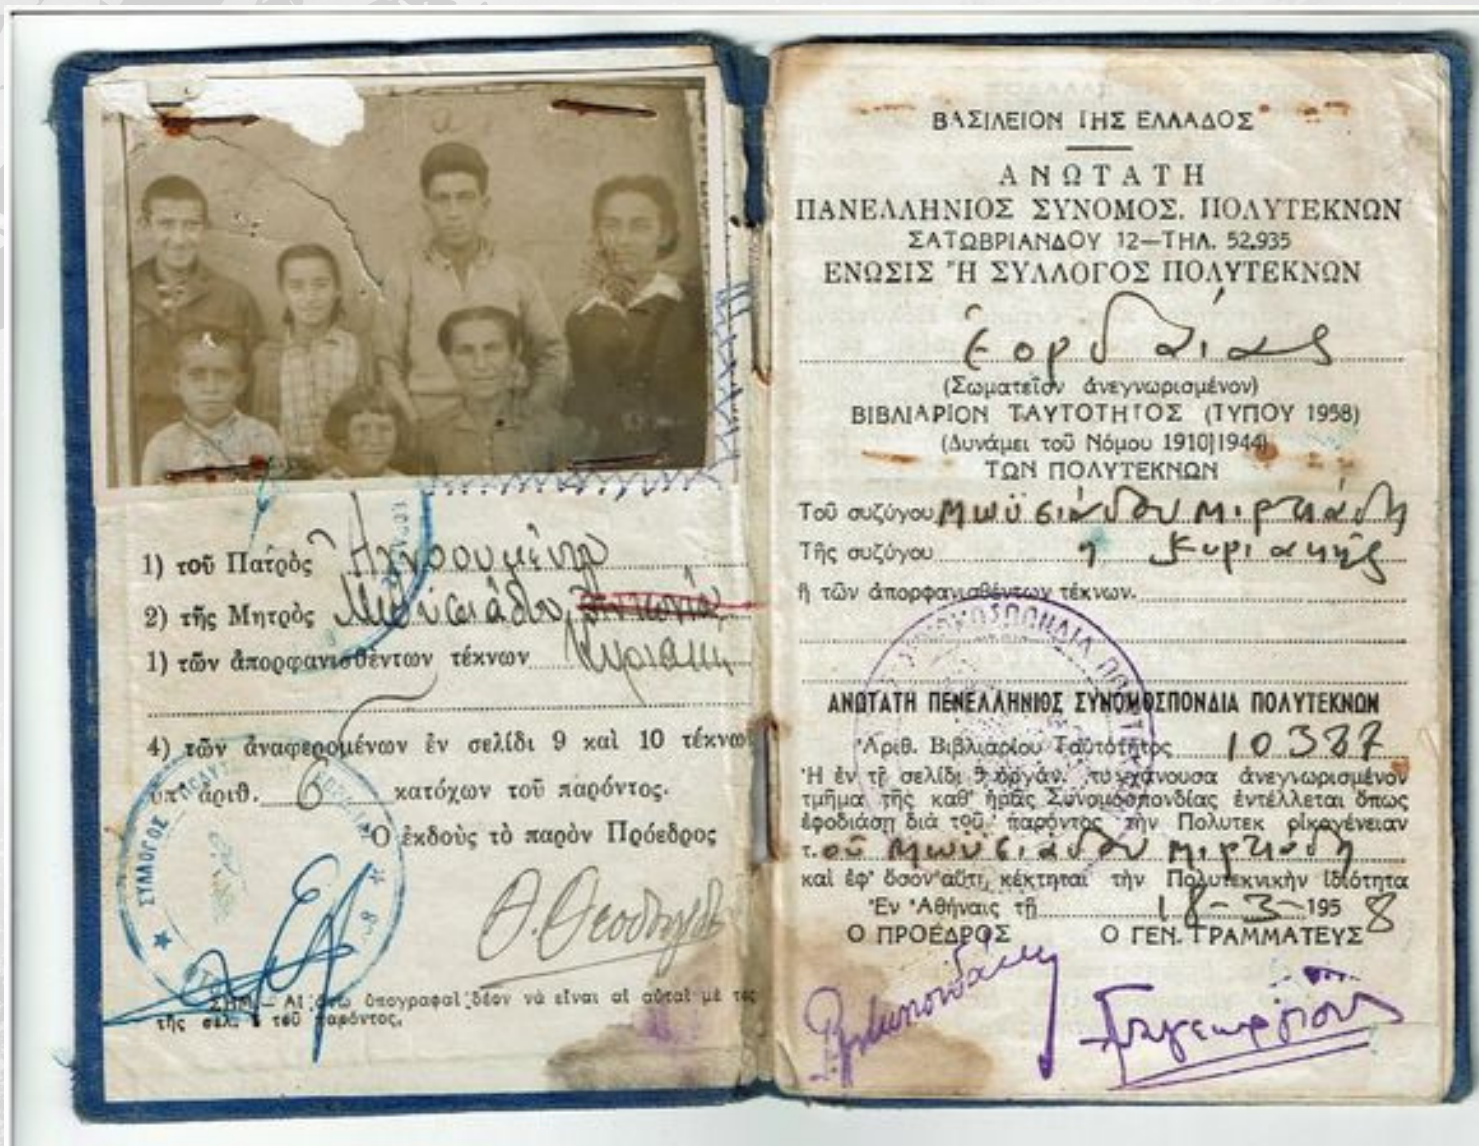 1) τοῦ Πατρὸς
2) τῆς Μητρὸς Μωϋσιάδου
1) τῶν ἀπορφανισθέντων τέκνων Κυριακή
4) τῶν ἀναφερομένων ἐν σελίδι 9 καὶ 10 τέκνω
ὑπ' ἀριθ. 6 κατόχων τοῦ παρόντος.
Ὁ ἐκδοὺς τὸ παρὸν Πρόεδρος
ΣΥΛΛΟΓΟΣ ΠΟΛΥΤ
ΣΗΜ.— Αἱ ἄνω ὑπογραφαὶ δέον νὰ εἶναι αἱ αὐταὶ μὲ τὰς
τῆς σελ. τοῦ παρόντος.
ΒΑΣΙΛΕΙΟΝ ΤΗΣ ΕΛΛΑΔΟΣ
ΑΝΩΤΑΤΗ
ΠΑΝΕΛΛΗΝΙΟΣ ΣΥΝΟΜΟΣ. ΠΟΛΥΤΕΚΝΩΝ
ΣΑΤΩΒΡΙΑΝΔΟΥ 12—ΤΗΛ. 52.935
ΕΝΩΣΙΣ Ἢ ΣΥΛΛΟΓΟΣ ΠΟΛΥΤΕΚΝΩΝ
Ἑορδαίας
(Σωματεῖον ἀνεγνωρισμένον)
ΒΙΒΛΙΑΡΙΟΝ ΤΑΥΤΟΤΗΤΟΣ (ΤΥΠΟΥ 1958)
(Δυνάμει τοῦ Νόμου 1910|1944)
ΤΩΝ ΠΟΛΥΤΕΚΝΩΝ
Τοῦ συζύγου Μωϋσιάδου Μιλτιάδη
Τῆς συζύγου ἡ Κυριακῆς
ἢ τῶν ἀπορφανισθέντων τέκνων.
ΑΝΩΤΑΤΗ ΠΕΝΕΛΛΗΝΙΟΣ ΣΥΝΟΜΟΣΠΟΝΔΙΑ ΠΟΛΥΤΕΚΝΩΝ
Ἀριθ. Βιβλιαρίου Ταὐτότητος 10387
Ἡ ἐν τῇ σελίδι 9 ὀργάν. τυγχάνουσα ἀνεγνωρισμένον
τμῆμα τῆς καθ' ἡμᾶς Συνομοσπονδίας ἐντέλλεται ὅπως
ἐφοδιάσῃ διὰ τοῦ παρόντος τὴν Πολυτεκ οἰκογένειαν
τ.οῦ Μωϋσιάδου Μιλτιάδη
καὶ ἐφ' ὅσον αὕτη κέκτηται τὴν Πολυτεκνικὴν ἰδιότητα
Ἐν Ἀθήναις τῇ 18-3-1958
Ο ΠΡΟΕΔΡΟΣ Ο ΓΕΝ. ΓΡΑΜΜΑΤΕΥΣ